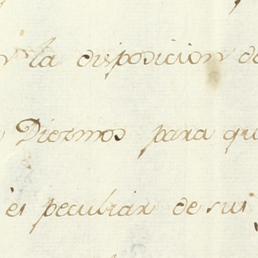 la disposicion de
Diezmos para que
es peculiar de sus